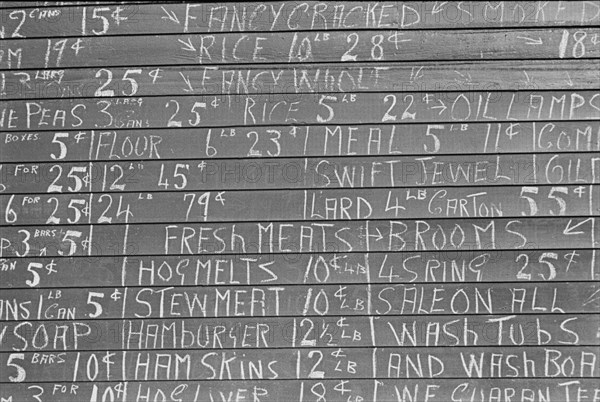 2 CANS 15¢ → FANCY CRACKED ↙ SMOKED
M 19¢ → RICE 10 LB 28¢ → 18¢
LARG 25¢ → FANCY WHOLE
E PEAS 3 LARG CANS 25¢ RICE 5 LB 22¢ → OIL LAMPS
BOXES 5¢ FLOUR 6 LB 23¢ MEAL 5 LB 11¢
FOR 25¢ 12 LB 45¢ SWIFT JEWEL
6 FOR 25¢ 24 LB 79¢ LARD 4 LB CARTON 55¢
P 3 BARS 5¢ FRESH MEATS → BROOMS ←
AN 5¢ HOG MELTS 10¢ LB 4 SRING 25¢
NS 1 LB CAN 5¢ STEW MERT 10¢ LB SALE ON ALL
Y SOAP HAMBURGER 12½¢ LB WASH TUBS
5 BARS 10¢ HAM SKINS 12¢ LB AND WASH BOA
M 3 FOR 10¢ HOG LIVER 18¢ LB WE GUARAN TEE